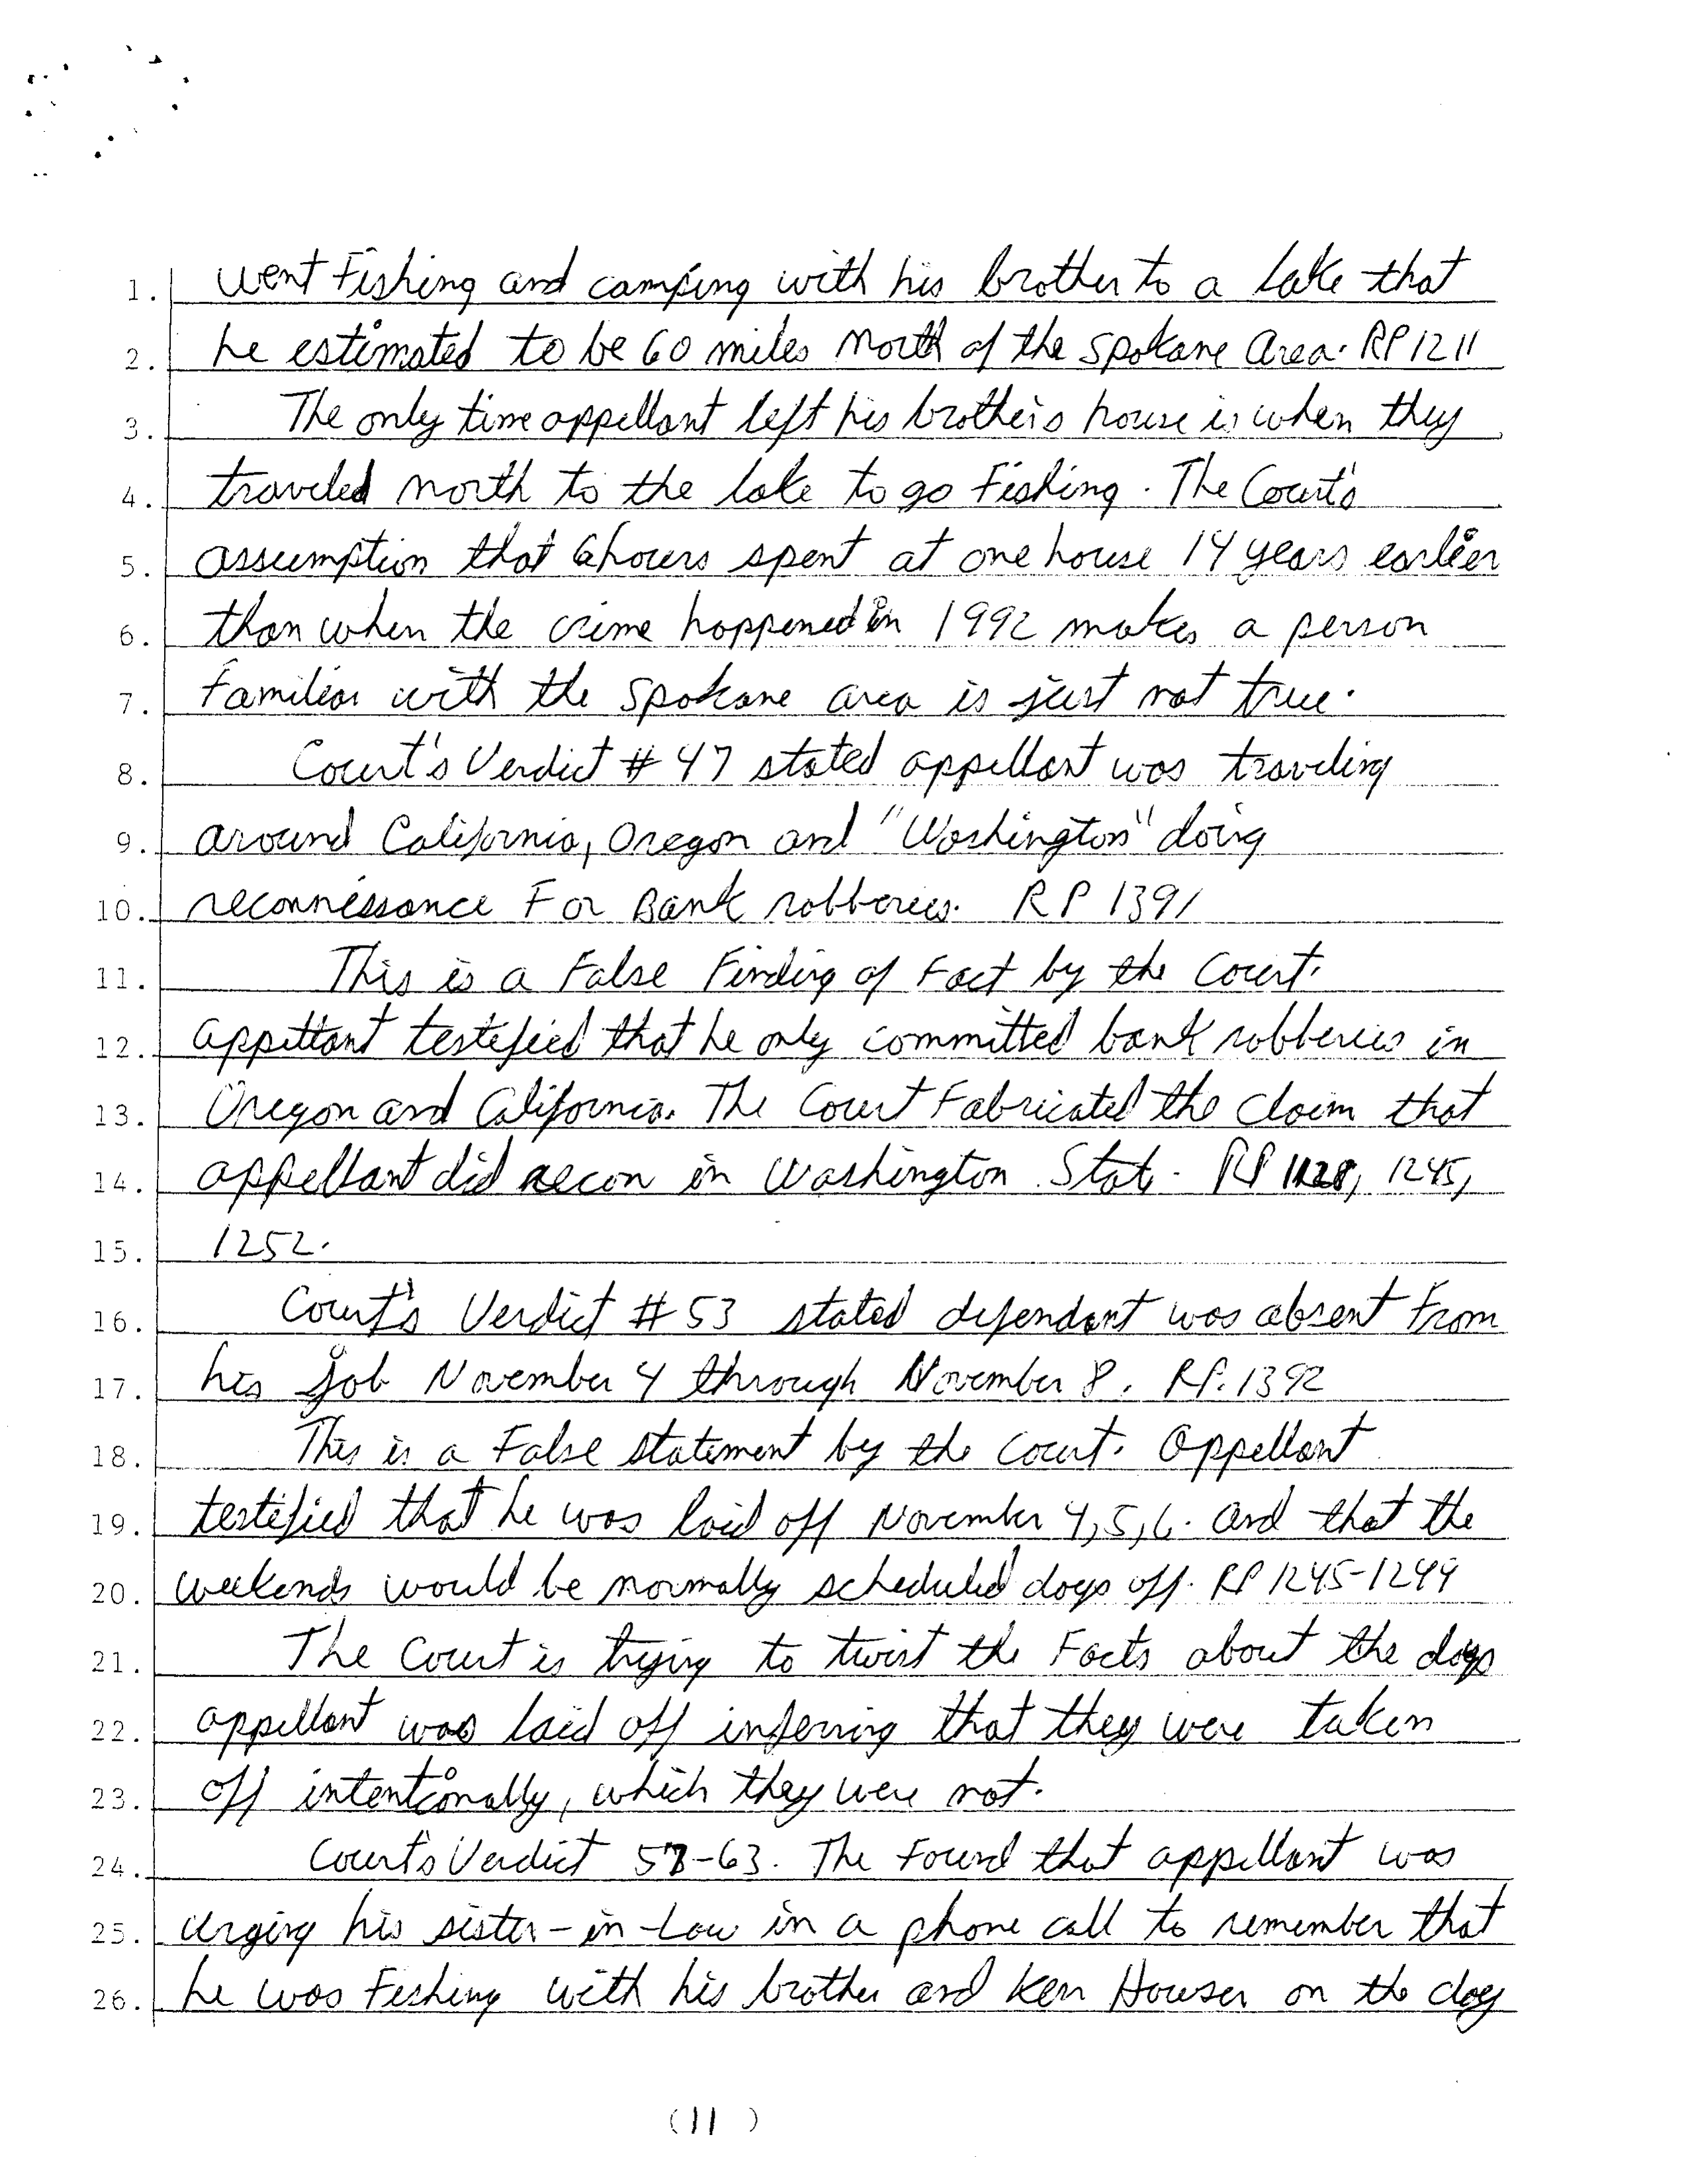 1. went Fishing and camping with his brother to a lake that
2. he estimated to be 60 miles North of the Spokane Area. RP 1211
3. The only time appellant left his brother's house is when they
4. traveled north to the lake to go Fishing. The Court's
5. assumption that 6 hours spent at one house 14 years earlier
6. than when the crime happened in 1992 makes a person
7. Familiar with the Spokane area is just not true.
8. Court's Verdict # 47 stated appellant was traveling
9. around California, Oregon and "Washington" doing
10. reconnessance For Bank robberies. RP 1391
11. This is a False Finding of Fact by the Court.
12. appellant testified that he only committed bank robberies in
13. Oregon and California. The Court Fabricated the claim that
14. appellant did recon in Washington State. RP 1128, 1245,
15. 1252.
16. Court's Verdict # 53 stated defendant was absent From
17. his job November 4 through November 8. RP. 1392
18. This is a False statement by the Court. Appellant
19. testified that he was laid off November 4,5,6. and that the
20. weekends would be normally scheduled days off. RP 1245-1249
21. The Court is trying to twist the Facts about the days
22. appellant was laid off inferring that they were taken
23. off intentionally, which they were not.
24. Court's Verdict 58-63. The Found that appellant was
25. urging his sister-in-Law in a phone call to remember that
26. he was Fishing with his brother and Ken Howser on the day
(11)